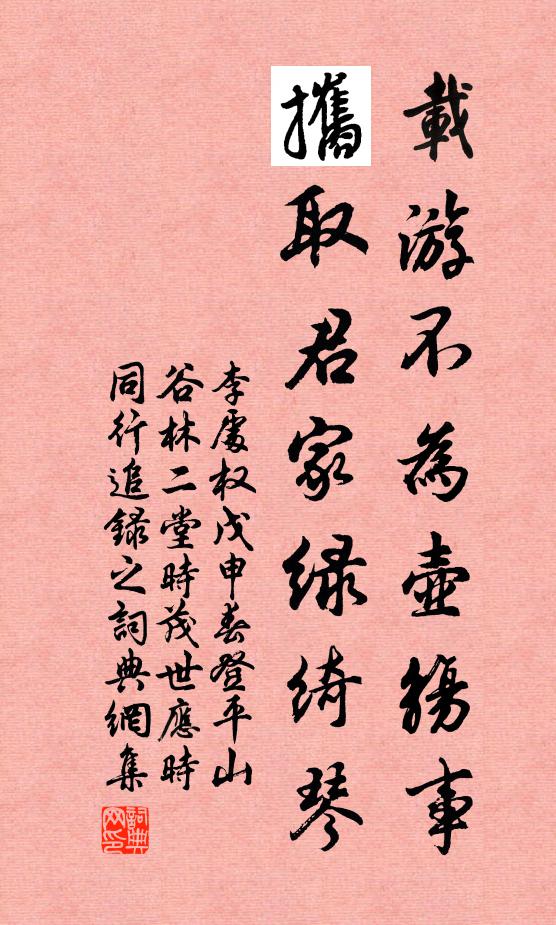 載游不為壺觴事
攜取君家緑綺琴
李處权戊申春登平山
谷林二堂時茂世應時
同行追録之詞典網集
詞典网印